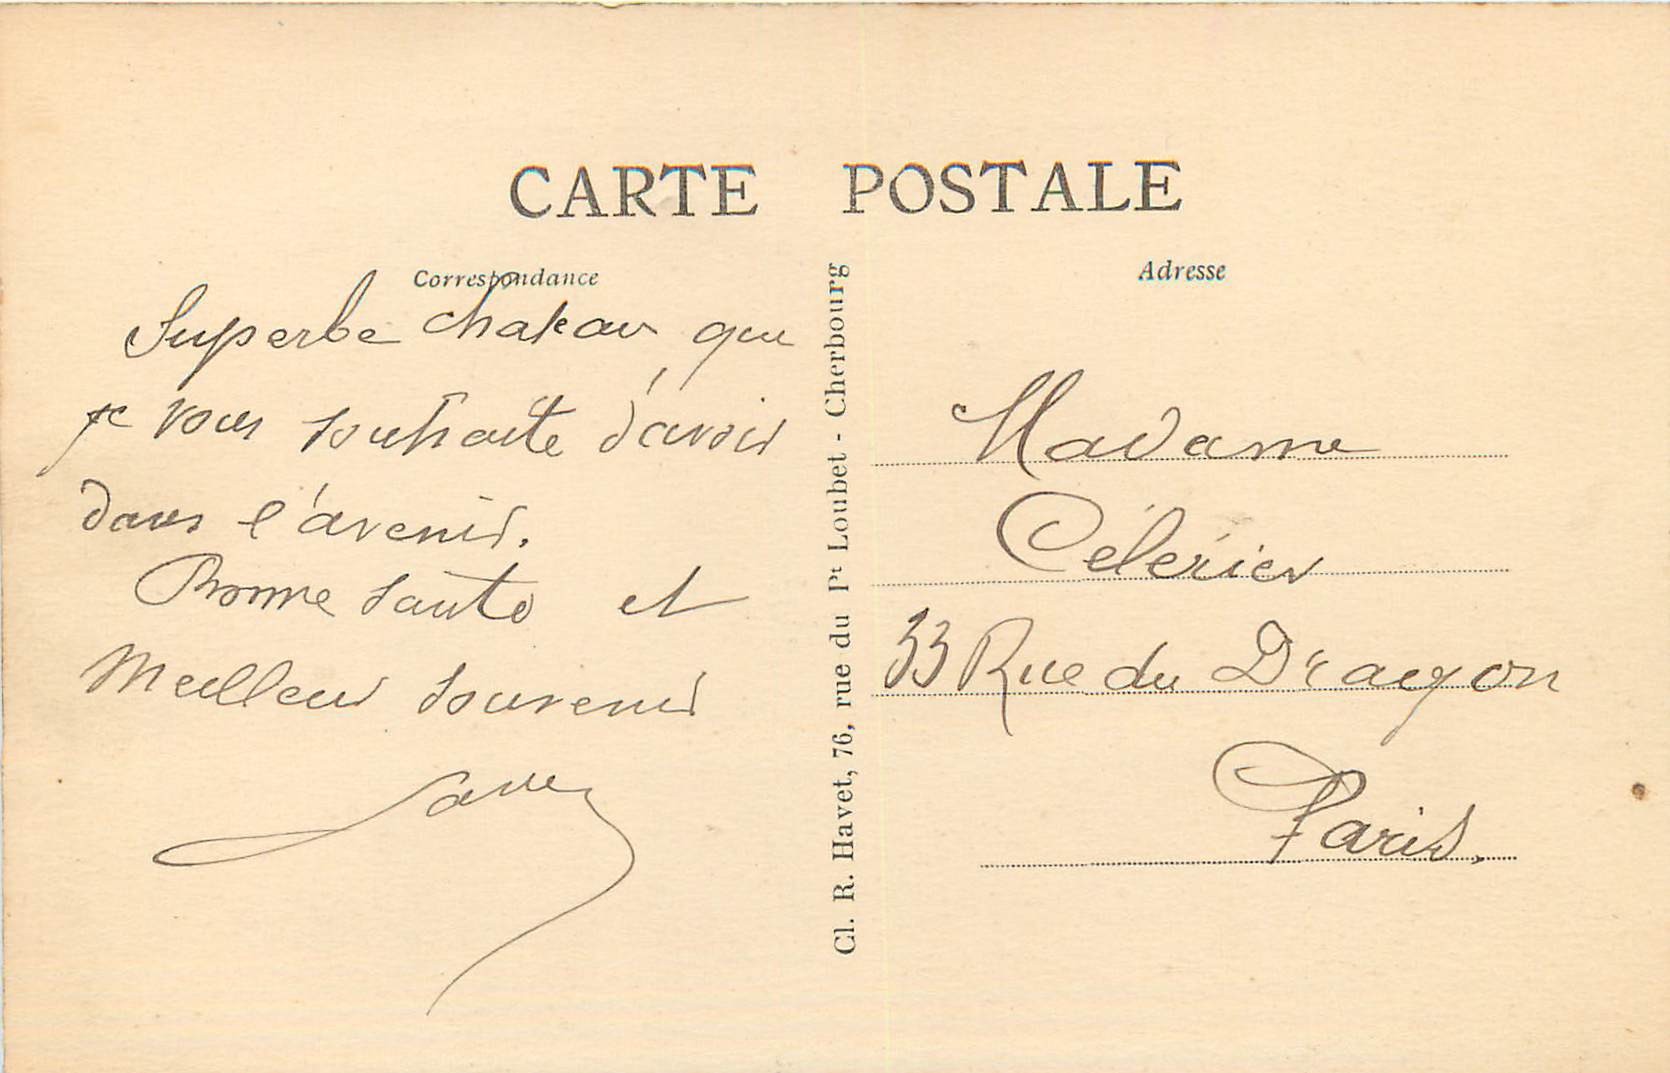 CARTE POSTALE
Correspondance
Superbe chateau que
je vous souhaite d'avoir
dans l'avenir.
Bonne santé et
Meilleur souvenir
Adresse
Madame
Célérier
33 Rue du Dragon
Paris.
Cl. R. Havet, 76, rue du Pt Loubet - Cherbourg